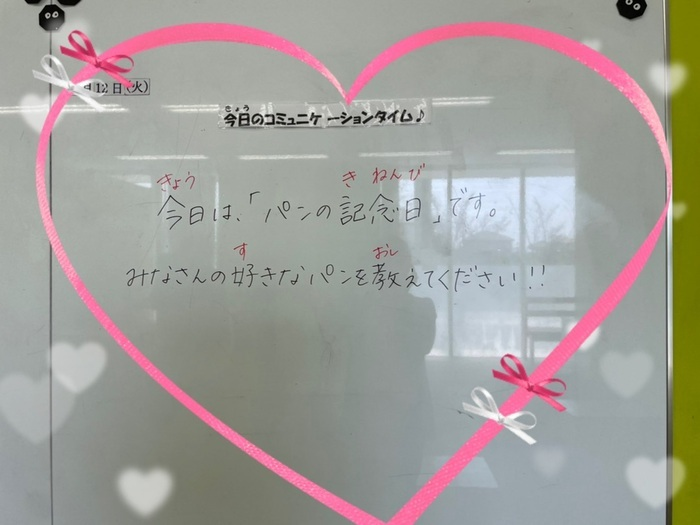 月12日(火)
きょう
今日のコミュニケーションタイム♪
きょう き ねんび
今日は、「パンの記念日」です。
す おし
みなさんの好きなパンを教えてください!!